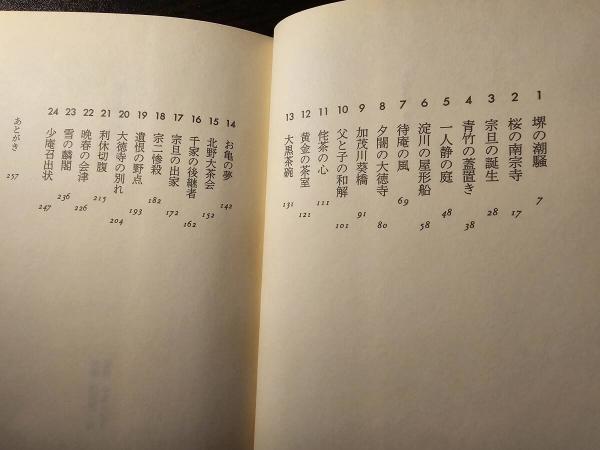 1 堺の潮騒 7
2 桜の南宗寺 17
3 宗旦の誕生 28
4 青竹の蓋置き 38
5 一人静の庭 48
6 淀川の屋形船 58
7 待庵の風 69
8 夕闇の大徳寺 80
9 加茂川葵橋 91
10 父と子の和解 101
11 侘茶の心 111
12 黄金の茶室 121
13 大黒茶碗 131
14 お亀の夢 142
15 北野大茶会 152
16 千家の後継者 162
17 宗旦の出家 172
18 宗二惨殺 182
19 遺恨の野点 193
20 大徳寺の別れ 204
21 利休切腹 215
22 晩春の会津 226
23 雪の麟閣 236
24 少庵召出状 247
あとがき 257